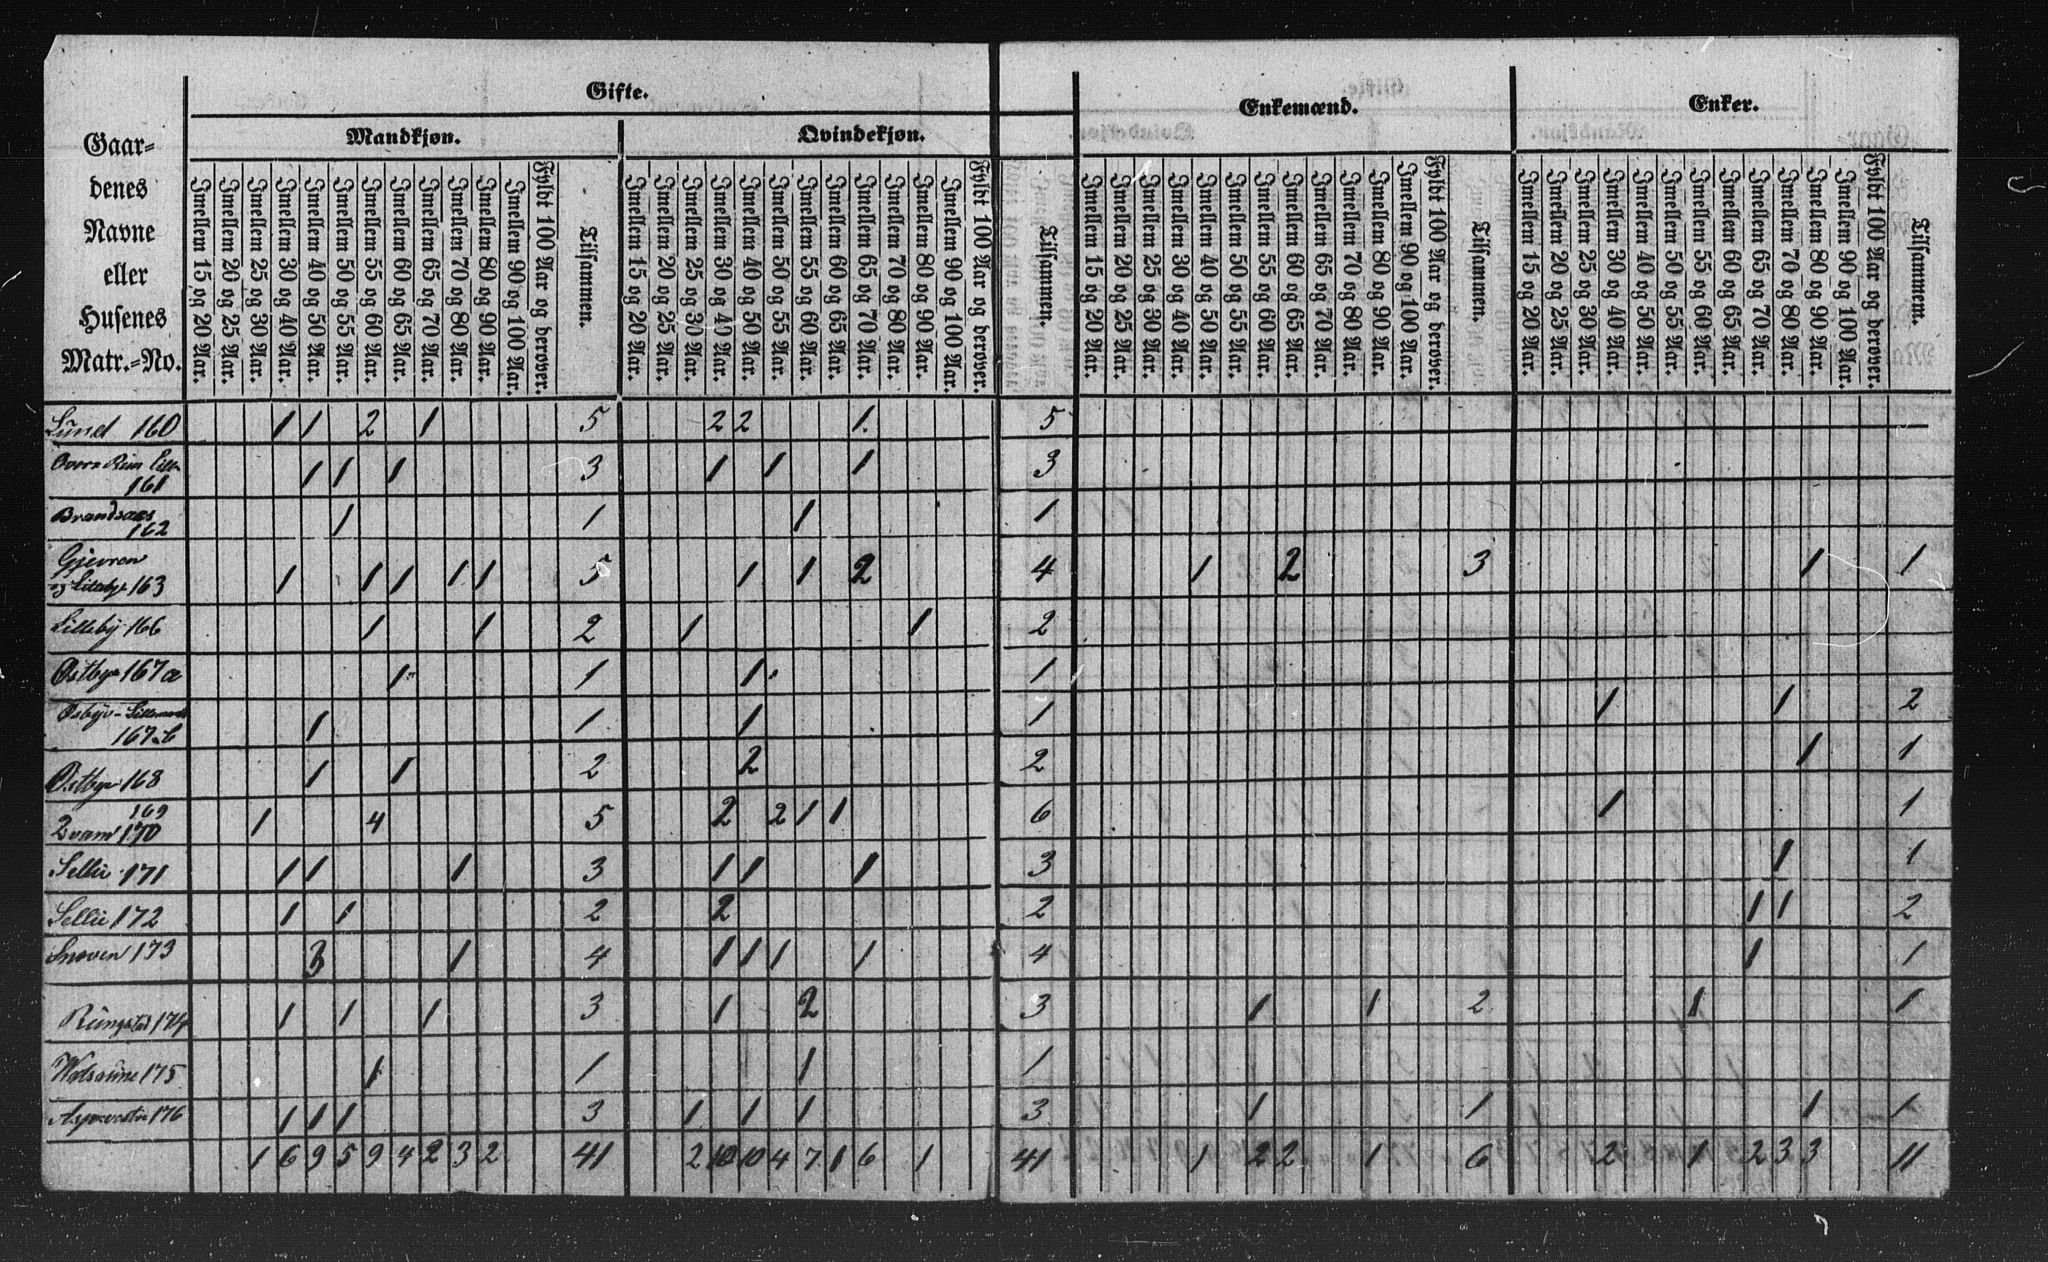 Gifte. Enkemænd. Enker.
Mandkjøn. Qvindekjøn.
Gaar-
denes
Navne
eller
Husenes
Matr.-No.
Imellem 15 og 20 Aar. Imellem 20 og 25 Aar. Imellem 25 og 30 Aar. Imellem 30 og 40 Aar. Imellem 40 og 50 Aar. Imellem 50 og 55 Aar. Imellem 55 og 60 Aar. Imellem 60 og 65 Aar. Imellem 65 og 70 Aar. Imellem 70 og 80 Aar. Imellem 80 og 90 Aar. Imellem 90 og 100 Aar. Fyldt 100 Aar og derover. Tilsammen.
Imellem 15 og 20 Aar. Imellem 20 og 25 Aar. Imellem 25 og 30 Aar. Imellem 30 og 40 Aar. Imellem 40 og 50 Aar. Imellem 50 og 55 Aar. Imellem 55 og 60 Aar. Imellem 60 og 65 Aar. Imellem 65 og 70 Aar. Imellem 70 og 80 Aar. Imellem 80 og 90 Aar. Imellem 90 og 100 Aar. Fyldt 100 Aar og derover. Tilsammen.
Imellem 15 og 20 Aar. Imellem 20 og 25 Aar. Imellem 25 og 30 Aar. Imellem 30 og 40 Aar. Imellem 40 og 50 Aar. Imellem 50 og 55 Aar. Imellem 55 og 60 Aar. Imellem 60 og 65 Aar. Imellem 65 og 70 Aar. Imellem 70 og 80 Aar. Imellem 80 og 90 Aar. Imellem 90 og 100 Aar. Fyldt 100 Aar og derover. Tilsammen.
Imellem 15 og 20 Aar. Imellem 20 og 25 Aar. Imellem 25 og 30 Aar. Imellem 30 og 40 Aar. Imellem 40 og 50 Aar. Imellem 50 og 55 Aar. Imellem 55 og 60 Aar. Imellem 60 og 65 Aar. Imellem 65 og 70 Aar. Imellem 70 og 80 Aar. Imellem 80 og 90 Aar. Imellem 90 og 100 Aar. Fyldt 100 Aar og derover. Tilsammen.
Lund 160 1 1 2 1 5 2 2 1. 5
Rein Lille
161 1 1 1 3 1 1 1 3
Brandsaas
162 1 1 1 1
Gjevran
og Lilleby 163 1 1 1 1 1 5 1 1 2 4 1 2 3 1 1
Lilleby 166 1 1 2 1 1 2
Østbye 167a 1 1 1 1
167b 1 1 1 1 1 1 2
Østbye 168 1 1 2 2 2 1 1
169
Qvam 170 1 4 5 2 2 1 1 6 1 1
Sellie 171 1 1 1 3 1 1 1 3 1 1
Sellie 172 1 1 2 2 2 1 1 2
Snoven 173 3 1 4 1 1 1 1 4 1 1
Rungstad 174 1 1 1 3 1 2 3 1 1 2 1 1
175 1 1 1 1
176 1 1 1 3 1 1 1 3 1 1 1 1
1 6 9 5 9 4 2 3 2 41 2 10 10 4 7 1 6 1 41 1 2 2 1 6 2 1 2 3 3 11